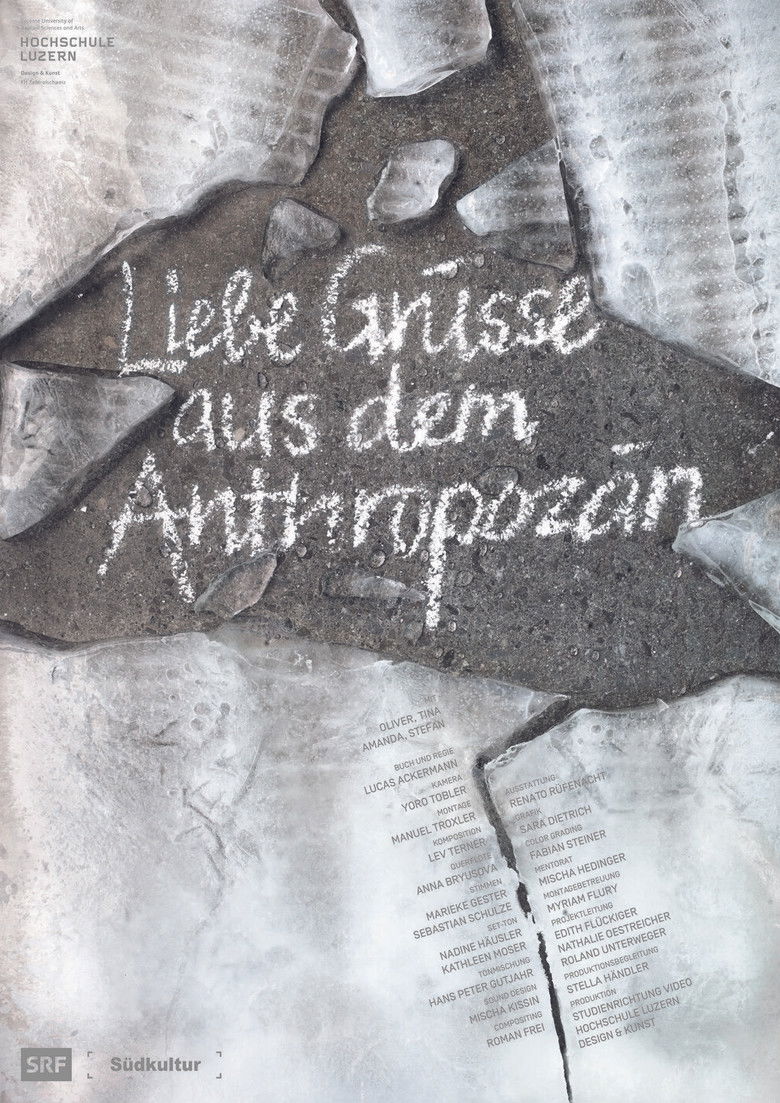 Lucerne University of
Applied Sciences and Arts
HOCHSCHULE
LUZERN
Design & Kunst
Liebe Grüsse
aus dem
Anthropozän
MIT
OLIVER, TINA
AMANDA, STEFAN
BUCH UND REGIE
LUCAS ACKERMANN
KAMERA
YORO TOBLER
MONTAGE
MANUEL TROXLER
KOMPOSITION
LEV TERNER
QUERFLÖTE
ANNA BRYUSOVA
STIMMEN
MARIEKE GESTER
SEBASTIAN SCHULZE
SET-TON
NADINE HÄUSLER
KATHLEEN MOSER
TONMISCHUNG
HANS PETER GUTJAHR
SOUND DESIGN
MISCHA KISSIN
COMPOSITING
ROMAN FREI
AUSSTATTUNG
RENATO RÜFENACHT
GRAFIK
SARA DIETRICH
COLOR GRADING
FABIAN STEINER
MENTORAT
MISCHA HEDINGER
MONTAGEBETREUUNG
MYRIAM FLURY
PROJEKTLEITUNG
EDITH FLÜCKIGER
NATHALIE OESTREICHER
ROLAND UNTERWEGER
PRODUKTIONSBEGLEITUNG
STELLA HÄNDLER
PRODUKTION
STUDIENRICHTUNG VIDEO
HOCHSCHULE LUZERN
DESIGN & KUNST
SRF
Südkultur